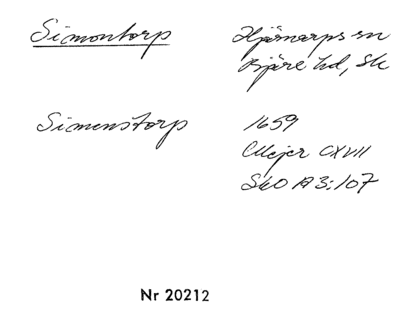 Simontorp
Hjärnarps sn
Bjäre hd, Sk
Simenstorp
1659
Mejer CXVII
SkO A3:107
Nr 20212